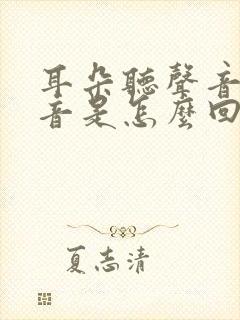 耳朵聽聲音
音是怎麼回
夏志清